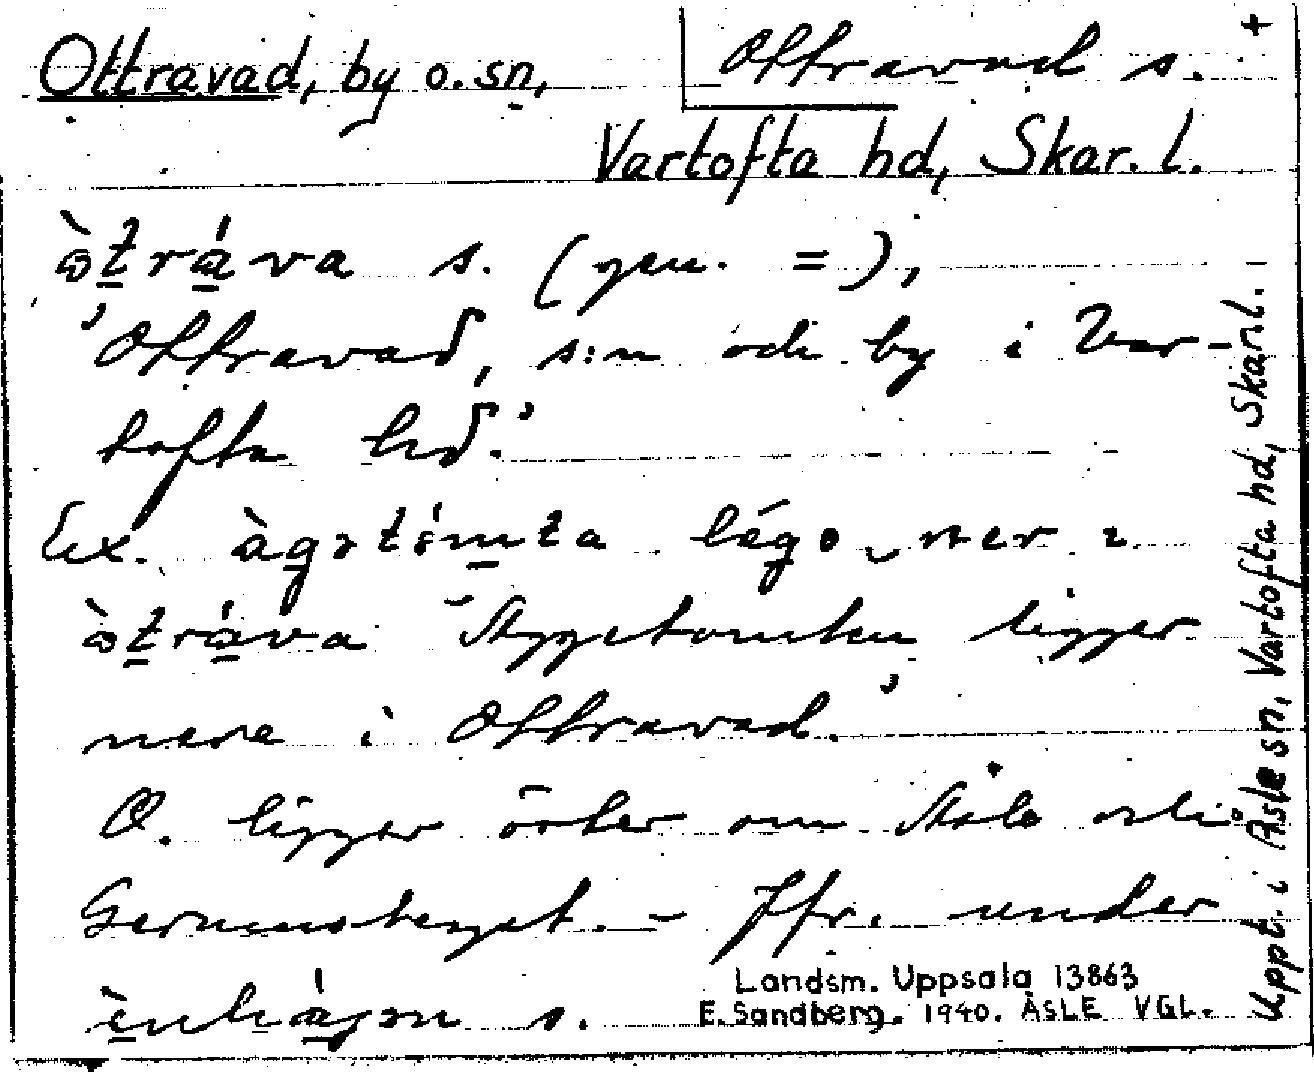 Ottravad, by o. sn,
Ottravad s. +
Vartofta hd, Skar. l.
òtráva s. (gen. =),
'Ottravad, s:n och by i Var-
tofta hd.'
Ex. àgstómta légo ner i
òtráva 'Äggetomten ligger
nere i Ottravad.'
O. ligger öster om Åsle och
Gerumsberget. – Jfr. under
s.
Landsm. Uppsala 13863
E. Sandberg. 1940. ÅSLE VGL.
Uppt. i Åsle sn, Vartofta hd, Skarl.